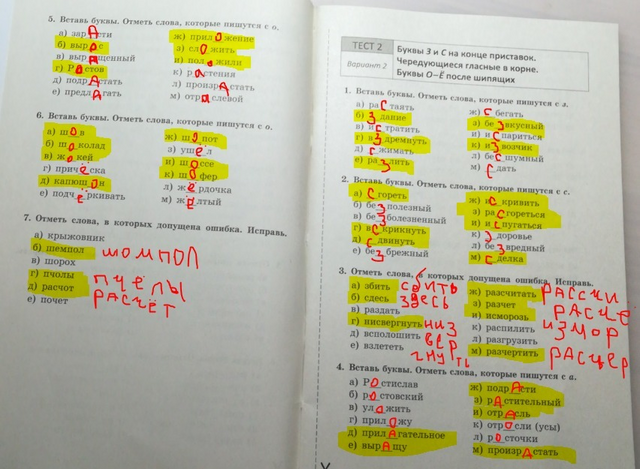 5. Вставь буквы. Отметь слова, которые пишутся с о.
а) зарАсти ж) приложение
б) вырос з) сложить
в) выращенный и) положили
г) Ростов к) растения
д) подрАстать л) произрАстать
е) предлАгать м) отраслевой
6. Вставь буквы. Отметь слова, которые пишутся с о.
а) шов ж) шопот
б) шоколад з) ушёл
в) жокей и) шоссе
г) причёска к) шофер
д) капюшон л) жёрдочка
е) подчёркивать м) жёлтый
7. Отметь слова, в которых допущена ошибка. Исправь.
а) крыжовник
б) шемпол ШОМПОЛ
в) шорох
г) пчолы ПЧЁЛЫ
д) расчот РАСЧЁТ
е) почет
ТЕСТ 2
Вариант 2
Буквы З и С на конце приставок.
Чередующиеся гласные в корне.
Буквы О–Ё после шипящих
1. Вставь буквы. Отметь слова, которые пишутся с з.
а) раСтаять ж) Сбегать
б) Здание з) беЗвкусный
в) иСтратить и) иСпариться
г) вЗдремнуть к) иЗвозчик
д) Сжимать л) беСшумный
е) раЗлить м) Сдать
2. Вставь буквы. Отметь слова, которые пишутся с с.
а) Сгореть ж) иСкривить
б) беЗполезный з) раСгореться
в) беЗболезненный и) иСпугаться
г) вСкрикнуть к) Здоровье
д) Сдвинуть л) беЗвредный
е) беЗбрежный м) Сделка
3. Отметь слова, в которых допущена ошибка. Исправь.
а) збить СБИТЬ ж) разсчитать РАССЧИ
б) сдесь ЗДЕСЬ з) разчет РАСЧЁ
в) раздать и) исморозь ИЗМОР
г) нисвергнуть НИЗ к) распилить
д) всполошить ВЕР л) разгрузить
е) взлететь ГНУТЬ м) разчертить РАСЧЕР
4. Вставь буквы. Отметь слова, которые пишутся с а.
а) РОстислав ж) подрАсти
б) рОстовский з) рАстительный
в) улОжить и) отрАсль
г) прилОжу к) отрОсли (усы)
д) прилАгательное л) рОсточки
е) вырАщу м) произрАстать